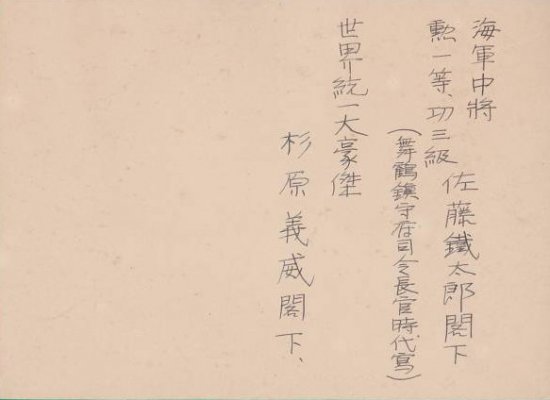 海軍中將
勲一等、功三級
佐藤鐵太郎閣下
(舞鶴鎮守府司令長官時代寫)
世界統一大豪傑
杉原義威閣下、